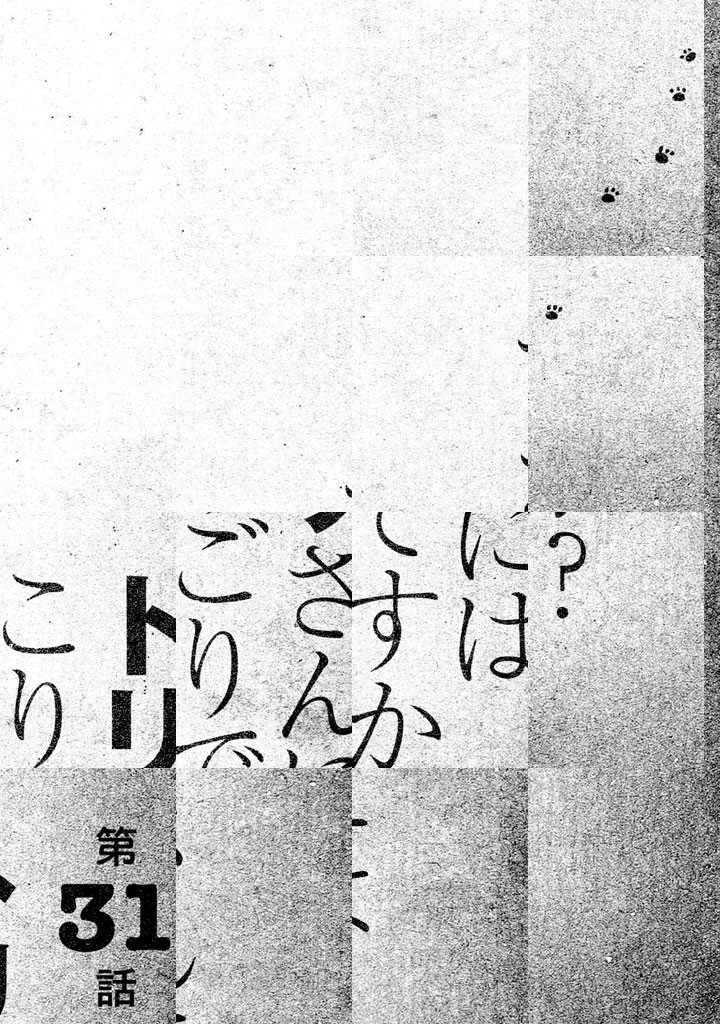 ?
には
すか
さん
ごりで
トリ
こり
第
31
話